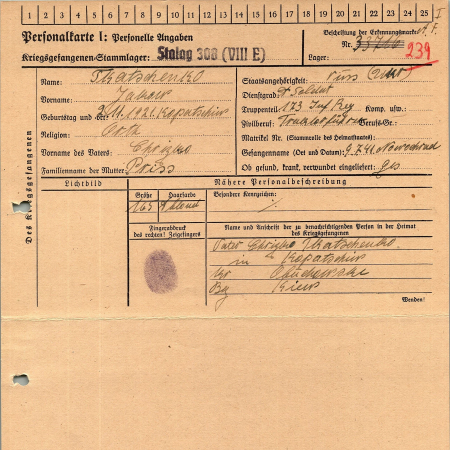 1 2 3 4 5 6 7 8 9 10 11 12 13 14 15 16 17 18 19 20 21 22 23 24 25 I
Personalkarte I: Personelle Angaben
Kriegsgefangenen-Stammlager: Stalag 308 (VIII E)
Beschriftung der Erkennungsmarke
Nr. 239
Lager:
Des Kriegsgefangenen
Name: Tkatschenko
Vorname:
Geburtstag und -Ort: 1921 Kopatschiw
Religion: Orth
Vorname des Vaters:
Familienname der Mutter: Priss
Staatsangehörigkeit: russ
Dienstgrad: Soldat
Truppenteil: 173 Inf Reg Komp. usw.:
Zivilberuf: Berufs-Gr.:
Matrikel Nr. (Stammrolle des Heimatstaates):
Gefangenname (Ort und Datum):
Ob gesund, krank, verwundet eingeliefert: ges
Lichtbild
Nähere Personalbeschreibung
Größe Haarfarbe Besondere Kennzeichen:
165 blond
Fingerabdruck
des rechten! Zeigefingers
Name und Anschrift der zu benachrichtigenden Person in der Heimat
des Kriegsgefangenen
Vater Tkatschenko
in Kopatschiw
Kr
Kiew
Wenden!